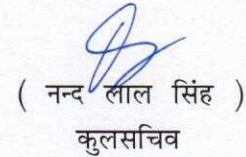 ( नन्द लाल सिंह )
कुलसचिव